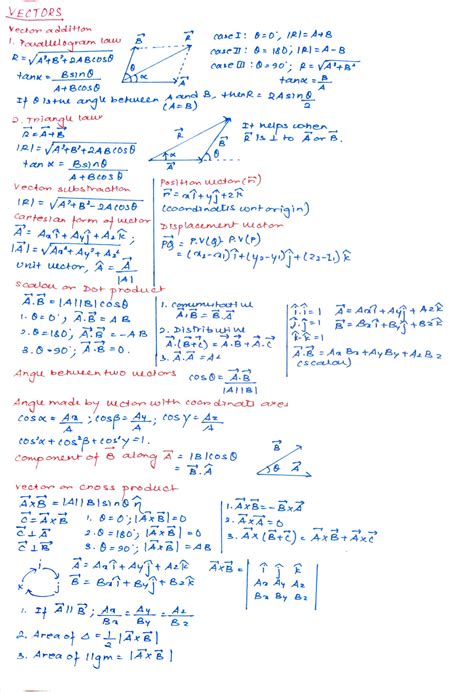 VECTORS
Vector addition
1. Parallelogram law
R = √A²+B²+2ABcosθ
tanα = Bsinθ / A+Bcosθ
B R
θ α A
case I : θ=0°, |R| = A+B
case II : θ=180°, |R| = A-B
case III : θ=90°; R = √A²+B²
tanα = B/A
If θ is the angle between A and B, then R = 2A sin θ/2
(A=B)
2. Triangle law
R = A+B
|R| = √A²+B²+2ABcosθ
tanα = Bsinθ / A+Bcosθ
R B
α A θ
It helps when
R is ⊥ to A or B.
Vector substraction
|R| = √A²+B²-2ACosθ
Cartesian form of vector
A = Axî + Ayĵ + Azk̂;
|A| = √Ax²+Ay²+Az²
unit vector, Â = A / |A|
Position vector (r)
r = xî+yĵ+zk̂
(coordinates wrt origin)
Displacement vector
PQ = P.V(Q) - P.V(P)
= (x₂-x₁)î + (y₂-y₁)ĵ + (z₂-z₁)k̂
Scalar or Dot product
A.B = |A||B|cosθ
1. θ=0°; A.B = AB
2. θ=180°; A.B = -AB
3. θ=90°; A.B = 0.
1. commutative
A.B = B.A
2. Distributive
A.(B+C) = A.B + A.C
3. A.A = A²
î.î = 1
ĵ.ĵ = 1
k̂.k̂ = 1
A = Axî + Ayĵ + Azk̂
B = Bxî + Byĵ + Bzk̂
A.B = AxBx + AyBy + AzBz
(scalar)
Angle between two vectors cosθ = A.B / |A||B|
Angle made by vector with coordinate axes
cosα = Ax/A ; cosβ = Ay/A ; cosγ = Az/A
cos²α + cos²β + cos²γ = 1.
component of B along A = |B|cosθ
= B.Â
B
θ A
Vector or cross product
A×B = |A||B|sinθ n̂
C = A×B
C ⊥ A
C ⊥ B
1. θ=0°; |A×B| = 0
2. θ=180°; |A×B| = 0
3. θ=90°; |A×B| = AB
1. A×B = -B×A
2. A×A = 0
3. A×(B+C) = A×B + A×C
i
k j
A = Axî + Ayĵ + Azk̂
B = Bxî + Byĵ + Bzk̂
A×B = | î ĵ k̂
Ax Ay Az
Bx By Bz |
1. If A || B ; Ax/Bx = Ay/By = Az/Bz
2. Area of Δ = 1/2 |A×B|
3. Area of ||gm = |A×B|